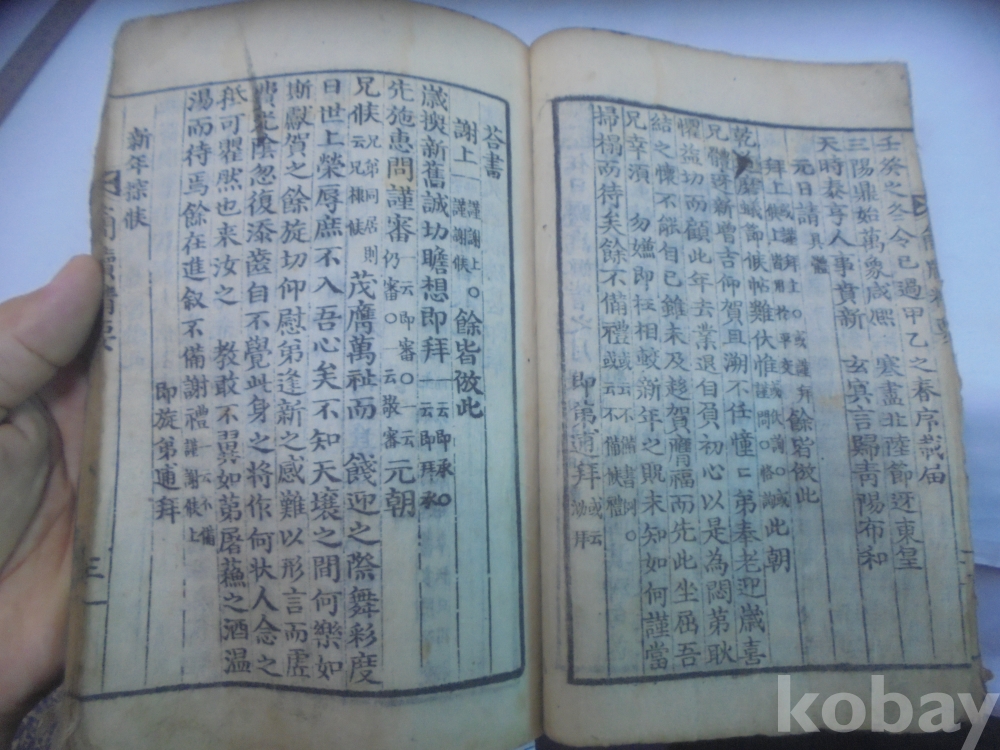 壬癸之冬令已過甲乙之春序載届
三陽鼎始萬象咸熙 寒盡北陸節迓東皇
天時泰亨人事賁新 玄冥言歸青陽布和
元日請 具體
拜上 餘皆倣此
伏惟 此朝
兄體迓新增吉仰賀且溯不任憧〻弟奉老迎歲喜
懼益切而顧此年去業退自負初心以是為悶弟耿
結之懷不能自已雖未及趍賀膺福而先此坐屈吾
兄幸須 勿嫌即枉相敍新年之貺未知如何謹當
掃榻而待矣餘不備禮
即弟逋拜 或云 泐拜
答書
謝上 謹謝上 謹謝候 ○餘皆倣此
歲換新舊誠切瞻想即拜 一云即承○ 一云即拜承
先施惠問謹審 一云即審○一云 仍審○一云敬審 元朝
兄候 兄弟同居則 云兄棣候 茂膺萬祉而 餞迎之際舞彩度
日世上榮辱庶不入吾心矣不知天壤之間何樂如
斯獻賀之餘旋切仰慰弟逢新之感難以形言而虛
費光陰忽復添齒自不覺此身之將作何狀人念之
秖可瞿然也来汝之 教敢不翼如第屠蘇之酒溫
湯而待焉餘在進叙不備謝禮 一云不備 謹謝候上
即旋弟逋拜
新年諒候